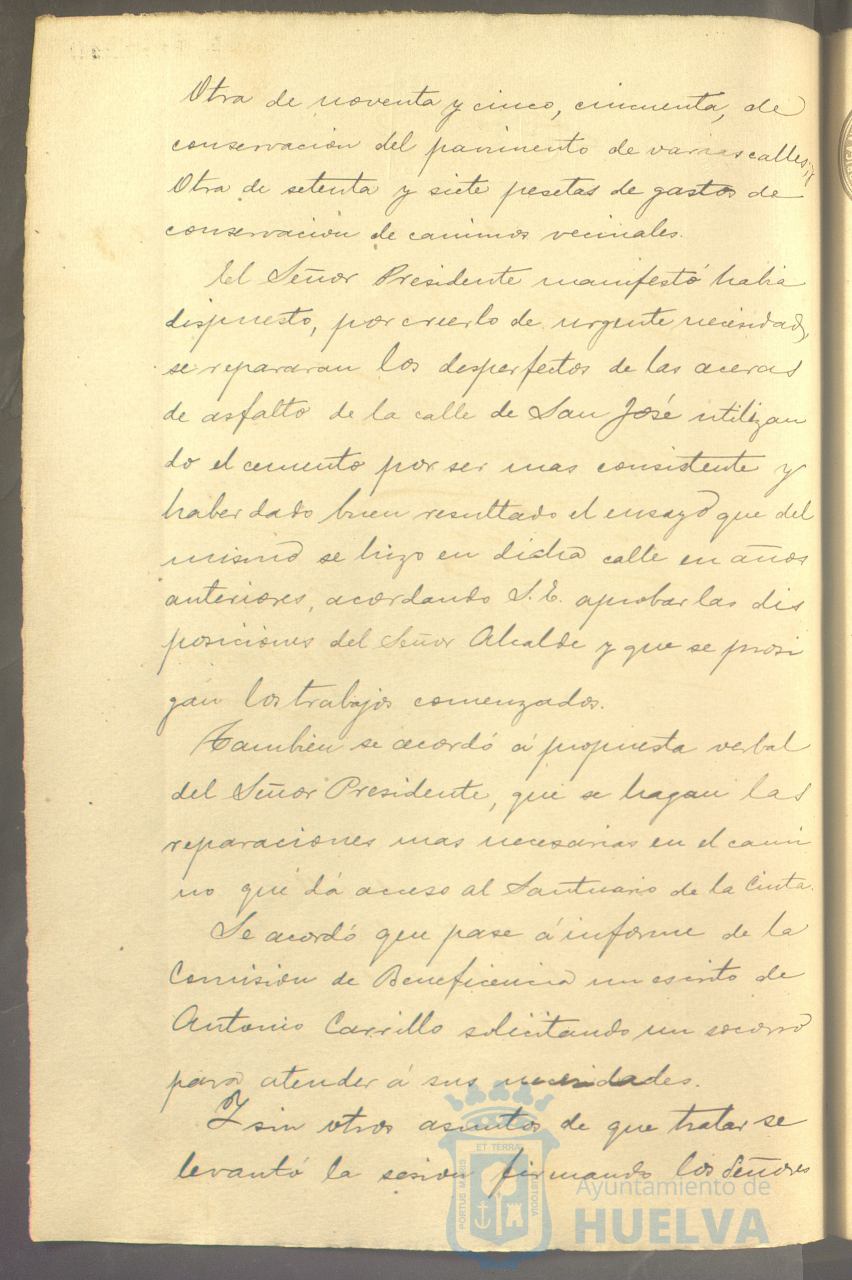 Otra de noventa y cinco, cincuenta, de
conservación del pavimento de varias calles; y
Otra de setenta y siete pesetas de gastos de
conservación de caminos vecinales.
El Señor Presidente manifestó había
dispuesto, por creerlo de urgente necesidad,
se repararan los desperfectos de las aceras
de asfalto de la calle de San José utilizan
do el cemento por ser mas consistente y
haber dado buen resultado el ensayo que del
mismo se hizo en dicha calle en años
anteriores, acordando S.E. aprobar las dis
posiciones del Señor Alcalde y que se prosi
gan los trabajos comenzados.
También se acordó á propuesta verbal
del Señor Presidente, que se hagan las
reparaciones mas necesarias en el cami
no que dá acceso al Santuario de la Cinta.
Se acordó que pase á informe de la
Comisión de Beneficencia un escrito de
Antonio Carrillo solicitando un socorro
para atender á sus necesidades.
Y sin otros asuntos de que tratar se
levantó la sesión firmando los Señores
PORTUS MARIS ET TERRAE CUSTODIA
Ayuntamiento de
HUELVA